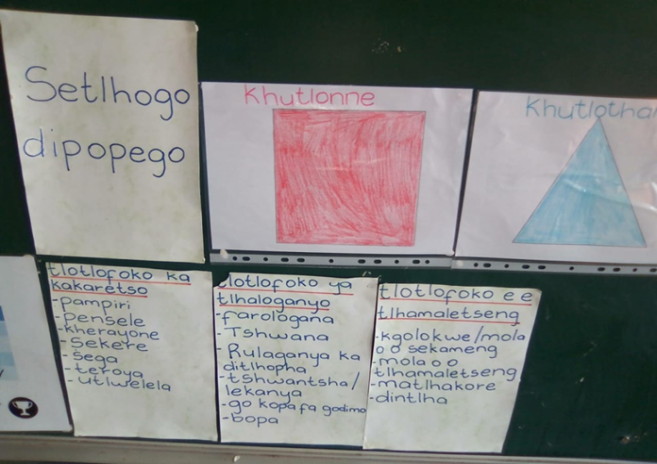 Setlhogo
dipopego
Khutlonne
tlotlofoko ka
kakaretso
-pampiri
-pensele
-kherayone
-sekere
-sega
-teroya
-utlwelela
tlotlofoko ya
tlhaloganyo
-farologana
-Tshwana
-Rulaganya ka
ditlhopha
-tshwantsha/
lekanya
-go kopa fa godimo
-bopa
tlotlofoko e e
tlhamaletseng
-kgolokwe/mola
o o sekameng
-mola o o
tlhamaletseng
-matlhakore
-dintlha